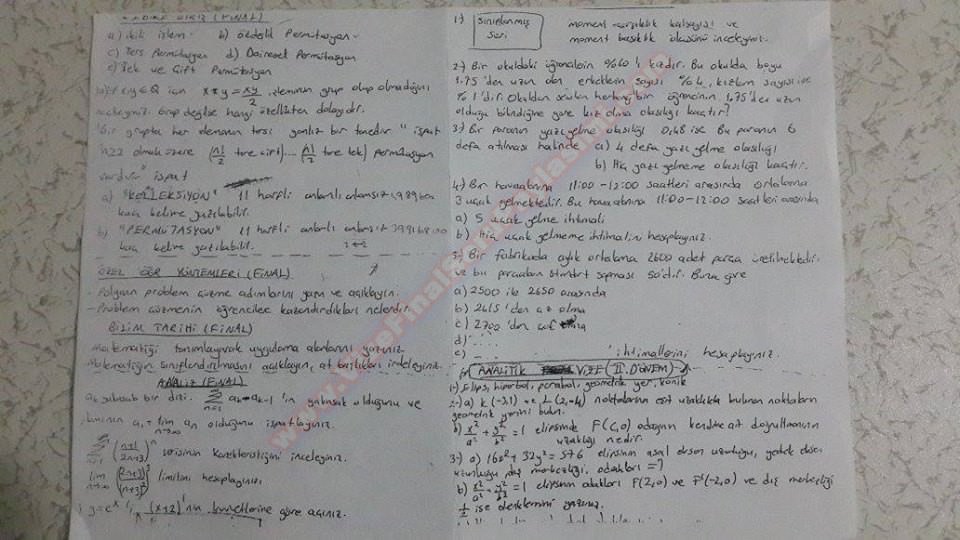 (FİNAL)
a) ikili işlem b) özdeşlik Permütasyon
c) Ters Permütasyon d) Dairesel Permütasyon
e) Tek ve Çift Permütasyon
x,y ∈ Q için x * y = xy/2 işleminin grup olup olmadığını
inceleyiniz. Grup değilse hangi özellikten dolayıdır.
"Bir grupta her elemanın tersi yanlız bir tanedir" ispat
n≥2 olmak üzere (n!/2 tane çift) ... (n!/2 tane tek) permütasyon
vardır" ispat
a) "KOLLEKSİYON" 11 harfli anlamlı anlamsız
kaç kelime yazılabilir.
b) "PERMÜTASYON" 11 harfli anlamlı anlamsız
kaç kelime yazılabilir.
ÖZEL ÖĞR YÖNTEMLERİ (FİNAL)
- Polyanın problem çözme adımlarını yazın ve açıklayın.
- Problem çözmenin öğrencilere kazandırdıkları nelerdir.
BİLİM TARİHİ (FİNAL)
Matematiği tanımlayarak uygulama alanlarını yazınız
Matematiğin sınıflandırılmasını açıklayın, alt başlıkları inceleyiniz.
ANALİZ (FİNAL)
bir dizi. ∑ ak - ak-1 'in yakınsak olduğunu ve
a1 = lim an olduğunu ispatlayınız.
∑ (n+1/2n+3)^n serisinin karakteristiğini inceleyiniz.
lim limitini hesaplayınız
y = e^x (x+2)' nin kuvvetlerine göre açınız.
1-) Sınıflanmış Seri moment çarpıklık katsayısı ve
moment basıklık ölçüsünü inceleyiniz.
2-) Bir okuldaki öğrencilerin %60'ı kızdır. Bu okulda boyu
1.75'den uzun olan erkeklerin sayısı %4, kızların sayısı ise
%1'dir. Okuldan seçilen herhangi bir öğrencinin 1.75'den uzun
olduğu bilindiğine göre kız olma olasılığı kaçtır?
3-) Bir paranın yazı gelme olasılığı 0,48 ise Bu paranın 6
defa atılması halinde a) 4 defa yazı gelme olasılığı
b) Hiç yazı gelmeme olasılığı kaçtır.
4-) Bir havaalanına 11:00-12:00 saatleri arasında ortalama
3 uçak gelmektedir. Bu havaalanına 11:00-12:00 saatleri arasında
a) 5 uçak gelme ihtimali
b) Hiç uçak gelmeme ihtimalini hesaplayınız.
5-) Bir fabrikada aylık ortalama 2600 adet parça üretilmektedir.
ve bu parçaların standart sapması 50'dir. Buna göre
a) 2500 ile 2650 arasında
b) 2415'den az olma
c) 2700'den çok olma
d) ....
e) - .. ihtimallerini hesaplayınız.
ANALİTİK VİZE (II. DÖNEM)
1-) Elips, hiperbol, parabol, geometrik yer, konik
2-) a) K (-3,1) ve L (2,-4) noktalarına eşit uzaklıkta bulunan noktaların
geometrik yerini bulun.
b) x²/a² + y²/b² = 1 elipsinde F(c,0) odağının kendine ait doğrultmanına
uzaklığı nedir.
3-) a) 16x² + 32y² = 576 elipsinin asal eksen uzunluğu, yedek eksen
uzunluğu, dış merkezliği, odakları = ?
b) x²/a² + y²/b² = 1 elipsinin odakları F(2,0) ve F'(-2,0) ve dış merkezliği
1/2 ise denklemini yazınız.